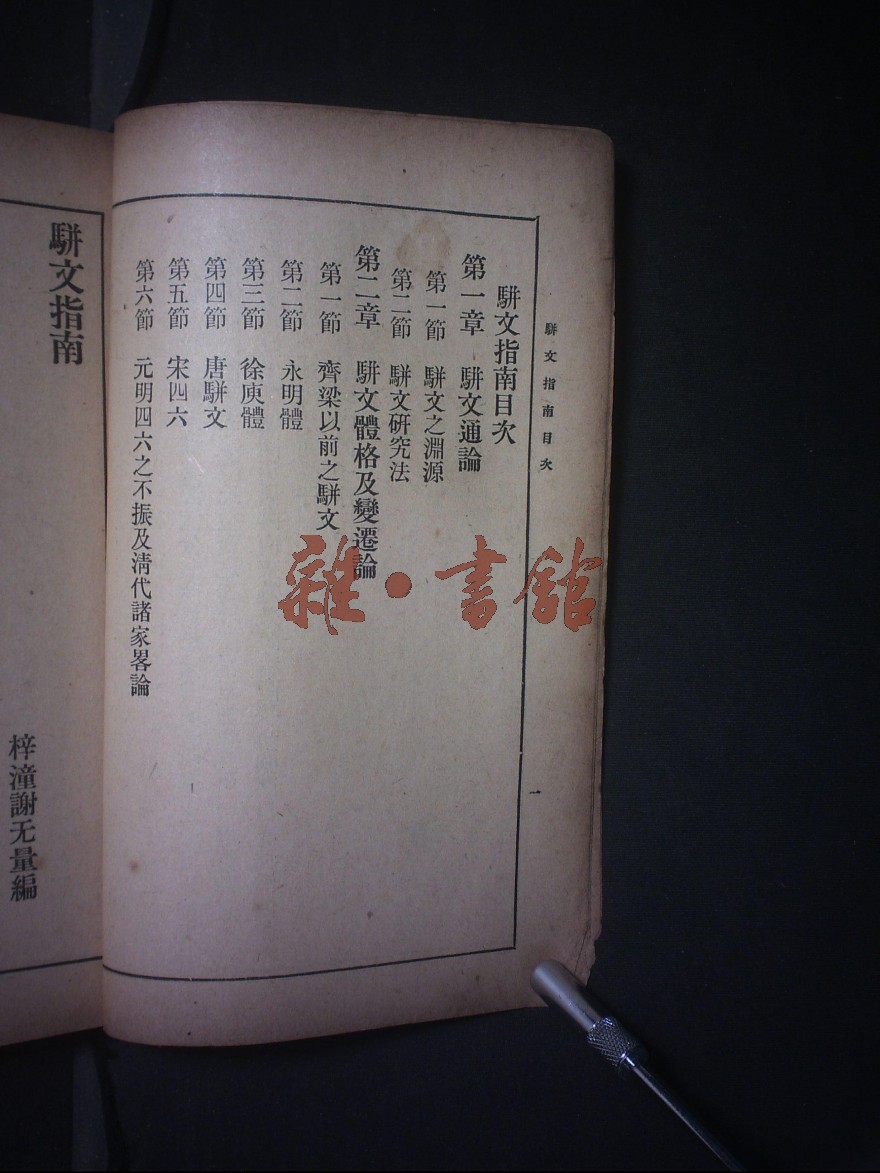 駢文指南目次
一
駢文指南目次
第一章　駢文通論
第一節　駢文之淵源
第二節　駢文研究法
第二章　駢文體格及變遷論
第一節　齊梁以前之駢文
第二節　永明體
第三節　徐庾體
第四節　唐駢文
第五節　宋四六
第六節　元明四六之不振及淸代諸家畧論
駢文指南
梓潼謝无量編
雜·書館